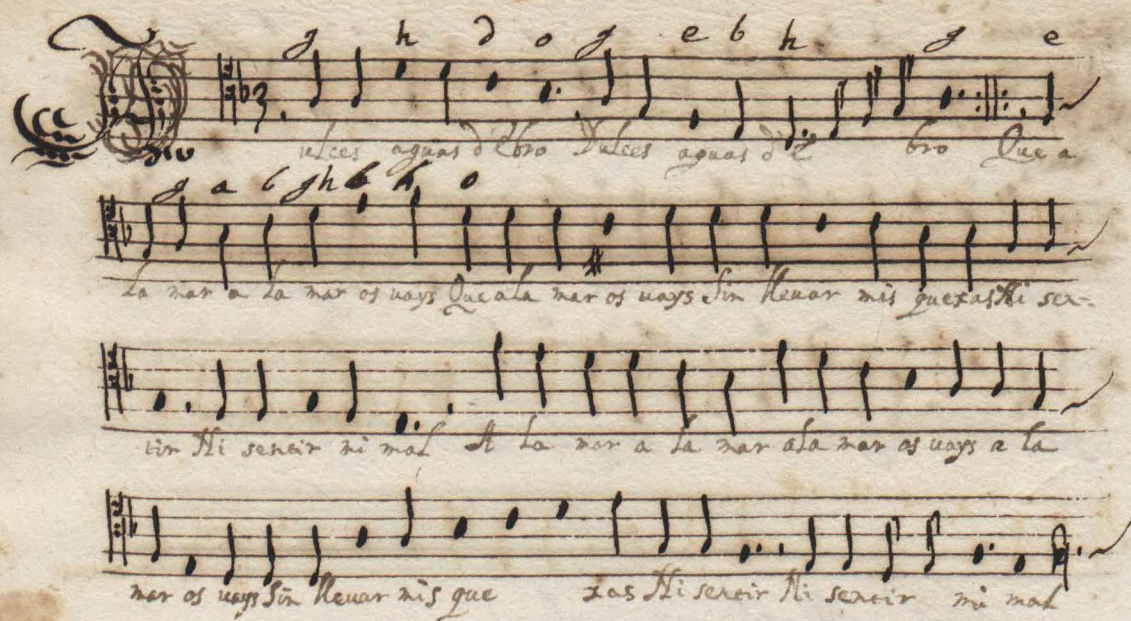 g h d o g e b h g e
Dulces aguas d'Ebro Dulces aguas d'E bro Que a
g a b g h b h o
la mar a la mar os uays Que a la mar os uays Sin lleuar mis quexas Ni sen-
tir Ni sentir mi mal A la mar a la mar a la mar os uays a la
mar os uays Sin lleuar mis que xas Ni sentir Ni sentir mi mal